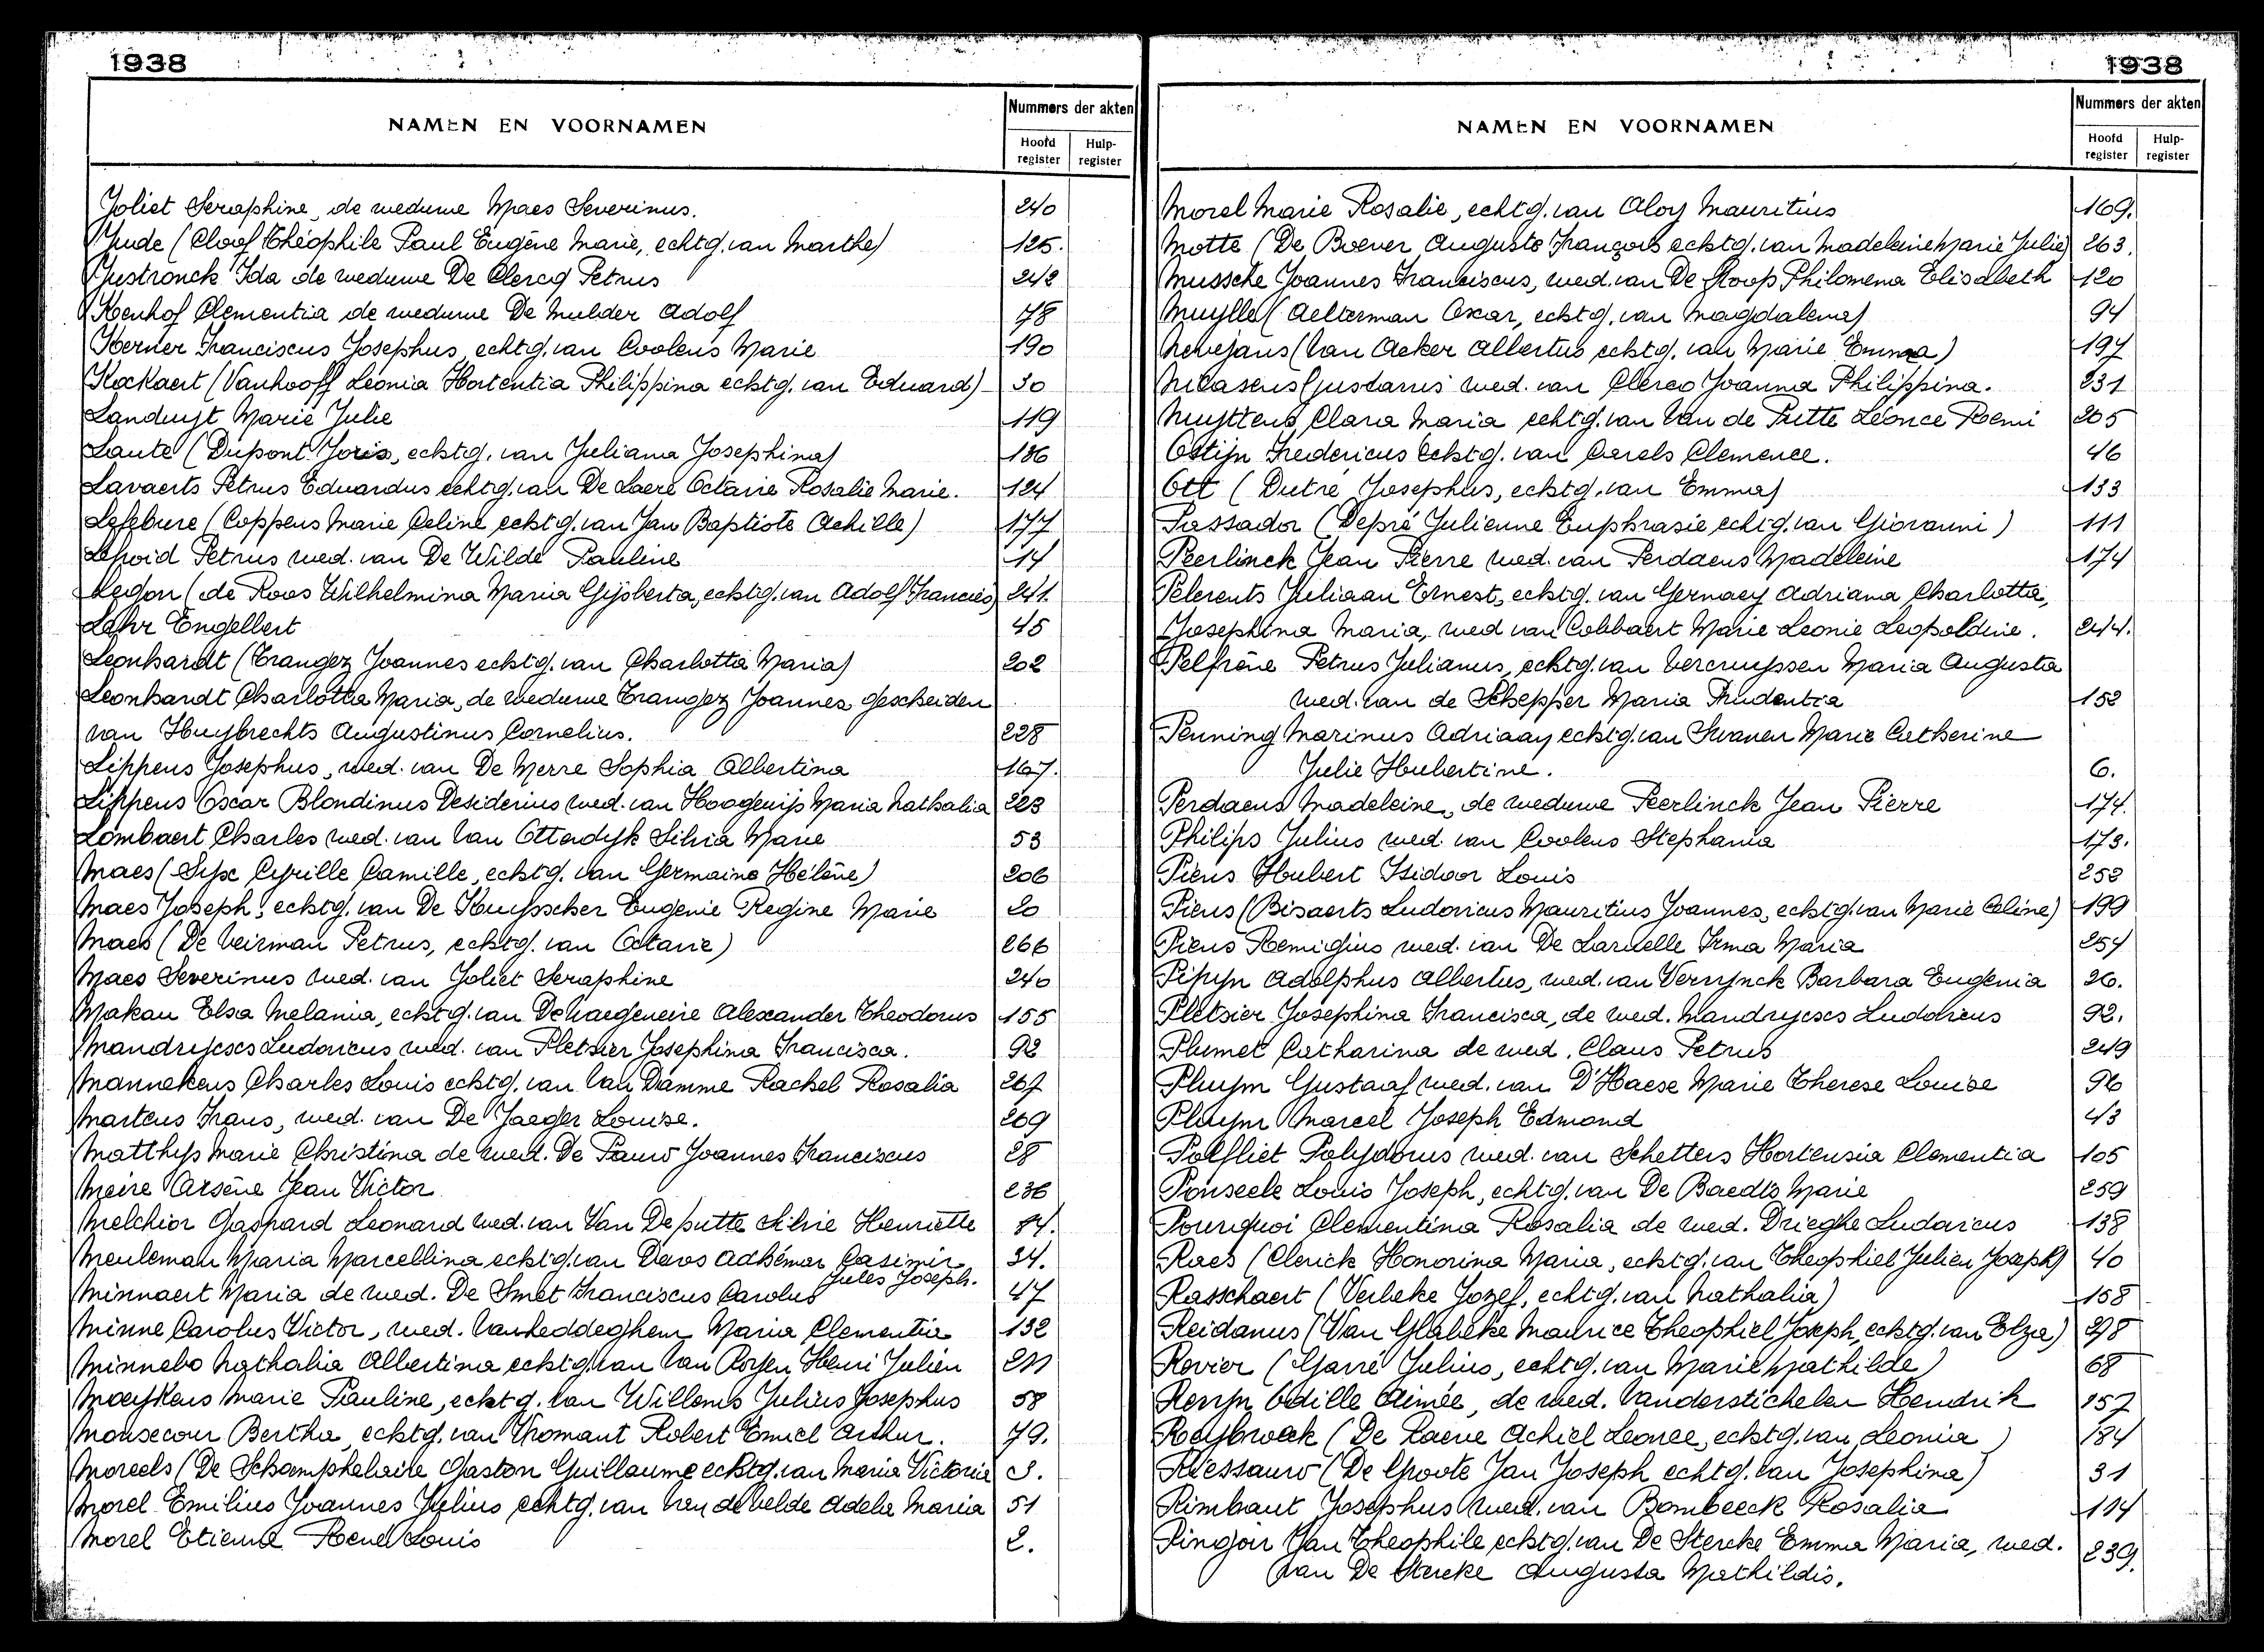 1938
NAMEN EN VOORNAMEN
Nummers der akten
Hoofd register
Hulp-register
Joliet Seraphine, de weduwe Maes Severinus. 240
Jude (Cloof Théophile Paul Eugène Marie, echtg. van Marthe) 125.
Justronck Ida de weduwe De Clercq Petrus 242
Kenhof Clementia de weduwe De Mulder Adolf 78
Kerner Franciscus Josephus, echtg. van Coolens Marie 190
Kockaert (Vanhooff Leonia Hortentia Philippina echtg. van Eduard) 30
Landuyt Marie Julie 119
Laute (Dupont Joris, echtg. van Juliana Josephina) 186
Lavaerts Petrus Eduardus echtg. van De Laere Octavie Rosalie Marie. 124
Lefebure (Coppens Marie Celine echtg. van Jan Baptiste Achille) 177
Petrus wed. van De Wilde Pauline 14
Legon (de Roos Wilhelmina Maria Gijsberta, echtg. van Adolf Francies) 241.
Lehr Engelbert 45
Leonhardt (Trangez Joannes echtg. van Charlotta Maria) 202
Leonhardt Charlotta Maria, de weduwe Trangez Joannes gescheiden
van Huybrechts Augustinus Cornelius. 228
Lippens Josephus, wed. van De Merre Sophia Albertina 167.
Lippens Oscar Blondinus Desiderius wed. van Hoogenijs Maria Nathalia 223
Lombaert Charles wed. van Van Ottendyk Silvia Marie 53
Maes (Sijx Cyrille Camille, echtg. van Germaine Hélène) 206
Maes Joseph, echtg. van De Kuysscher Eugenie Regine Marie 20
Maes (De Veirman Petrus, echtg. van Octavie) 266
Maes Severinus wed. van Joliet Seraphine 240
Makau Elsa Melania, echtg. van De haegeneire Alexander Theodorus 155
Mandrycxs Ludovicus wed. van Pletsier Josephina Francisca. 92
Mannekens Charles Louis echtg. van Van Damme Rachel Rosalia 267
Martens Frans, wed. van De Jaeger Louise. 269
Matthys Marie Christina de wed. De Pauw Joannes Franciscus 28
Meire Arsène Jean Victor 236
Melchior Gaspard Leonard wed. van Van De putte Silvie Henriette 84.
Meuleman Maria Marcellina echtg. van Daos Adhémar Casimir 34.
Jules Joseph.
Minnaert Maria de wed. De Smet Franciscus Carolus 47
Minne Carolus Victor, wed. Vanheddeghem Maria Clementia 132
Minnebo Nathalia Albertina echtg. van Van Royen Henri Julien 211
Moeykens Marie Pauline, echtg. van Willems Julius Josephus 58
Monsecour Bertha, echtg. van Thomant Robert Emiel Arthur. 79.
Moreels (De Schamphelaire Gaston Guillaume echtg. van Maria Victoria 3.
Morel Emilius Joannes Julius echtg. van Van de velde Adela Maria 51
Morel Etienne René Louis 2.
1938
NAMEN EN VOORNAMEN
Nummers der akten
Hoofd register
Hulp-register
Morel Marie Rosalie, echtg. van Aloy Mauritius 169.
Motte (De Boever Auguste François echtg. van Madeleine Marie Julie) 263.
Mussche Joannes Franciscus, wed. van De Stoop Philomena Elisabeth 120
Muylle (Aelterman Oscar, echtg. van Magdalena) 94
Nevejans (Van Acker Albertus echtg. van Marie Emma) 197
Nicasens Gustavus wed. van Clerco Joanna Philippina. 231
Nuyttens Clara Maria echtg. van Van de Putte Léonce Remi 205
Ostijn Fredericus echtg. van Carels Clemence. 46
Ott (Dutré Josephus, echtg. van Emma) 133
Passador (Depré Julienne Euphrasie echtg. van Giovanni) 111
Peerlinck Jean Pierre wed. van Perdaens Madeleine 174
Pelerents Juliaan Ernest, echtg. van Gernaey Adriana Charlotta,
Josephina Maria, wed van Cobbaert Marie Leonie Leopoldine. 244.
Pelfrêne Petrus Julianus, echtg. van Vercruyssen Maria Augusta
wed. van de Schepper Maria Prudentia 152
Penning Marinus Adriaan echtg. van Swanen Marie Catherine
Julie Hubertine. 6.
Perdaens Madeleine, de weduwe Peerlinck Jean Pierre 174.
Philips Julius wed. van Coolens Stephania 173.
Piens Hubert Isidoor Louis 252
Piens (Bisaerts Ludovicus Mauritius Joannes, echtg. van Marie Celine) 199
Piens Remigius wed. van De Laruelle Irma Maria 254
Pipyn Adolphus Albertus, wed. van Verrynck Barbara Eugenia 26.
Pletsier Josephina Francisca, de wed. Mandrycxs Ludovicus 92.
Plumet Catharina de wed. Claus Petrus 249
Pluym Gustaaf wed. van D'Haese Marie Therese Louise 96
Pluym Marcel Joseph Edmond 43
Polfliet Polydorus wed. van Schetters Hortensia Clementia 105
Ponseele Louis Joseph, echtg. van De Baedts Marie 259
Pourquoi Clementina Rosalia de wed. Drieghe Ludovicus 138
Raes (Clerick Honorina Maria, echtg. van Theophiel Julien Joseph) 40
Rasschaert (Verbeke Jozef, echtg. van Nathalia) 158
Reidanus (Van Glabeke Maurice Theophiel Joseph, echtg. van Elza) 278
Revier (Yarré Julius, echtg. van Marie Mathilde) 68
Reryn Odille Aimée, de wed. Vanderstichelen Hendrik 157
Reybroeck (De Laeve Achiel Leonce, echtg. van Leonia) 184
Riessauw (De Groote Jan Joseph echtg. van Josephina) 31
Rimbaut Josephus wed. van Bombeeck Rosalia 114
Pingoir Jan Theophile echtg. van De Stercke Emma Maria, wed. 239.
van De Stercke Augusta Mathildis.